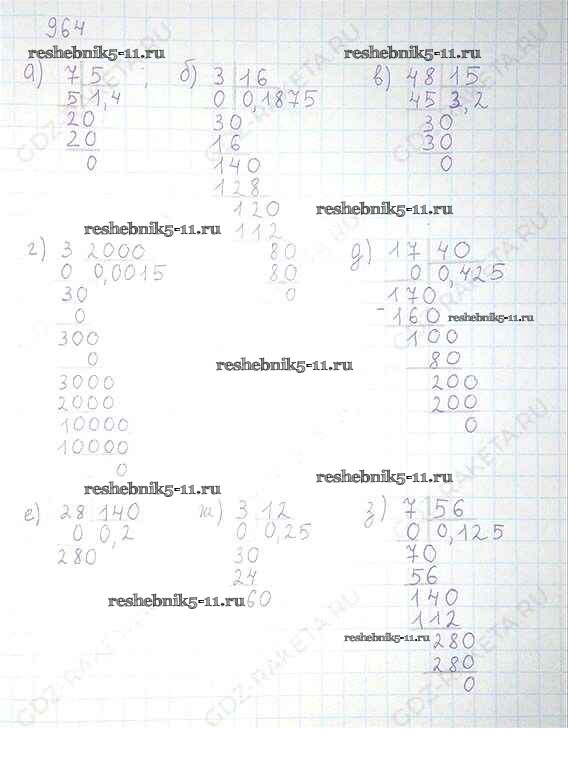 964
reshebnik5-11.ru
reshebnik5-11.ru
а) 7 5 ;
5 1,4
20
20
0
б) 3 16
0 0,1875
30
16
140
128
120
112
80
80
0
в) 48 15
45 3,2
30
30
0
reshebnik5-11.ru
reshebnik5-11.ru
г) 3 2000
0 0,0015
30
0
300
0
3000
2000
10000
10000
0
д) 17 40
0 0,425
170
- 160
100
80
200
200
0
reshebnik5-11.ru
reshebnik5-11.ru
reshebnik5-11.ru
reshebnik5-11.ru
е) 28 140
0 0,2
280
ж) 3 12
0 0,25
30
24
60
reshebnik5-11.ru
з) 7 56
0 0,125
70
56
140
112
280
280
0
reshebnik5-11.ru
GDZ-RAKETA.RU
GDZ-RAKETA.RU
GDZ-RAKETA.RU
GDZ-RAKETA.RU
GDZ-RAKETA.RU
GDZ-RAKETA.RU
GDZ-RAKETA.RU
GDZ-RAKETA.RU